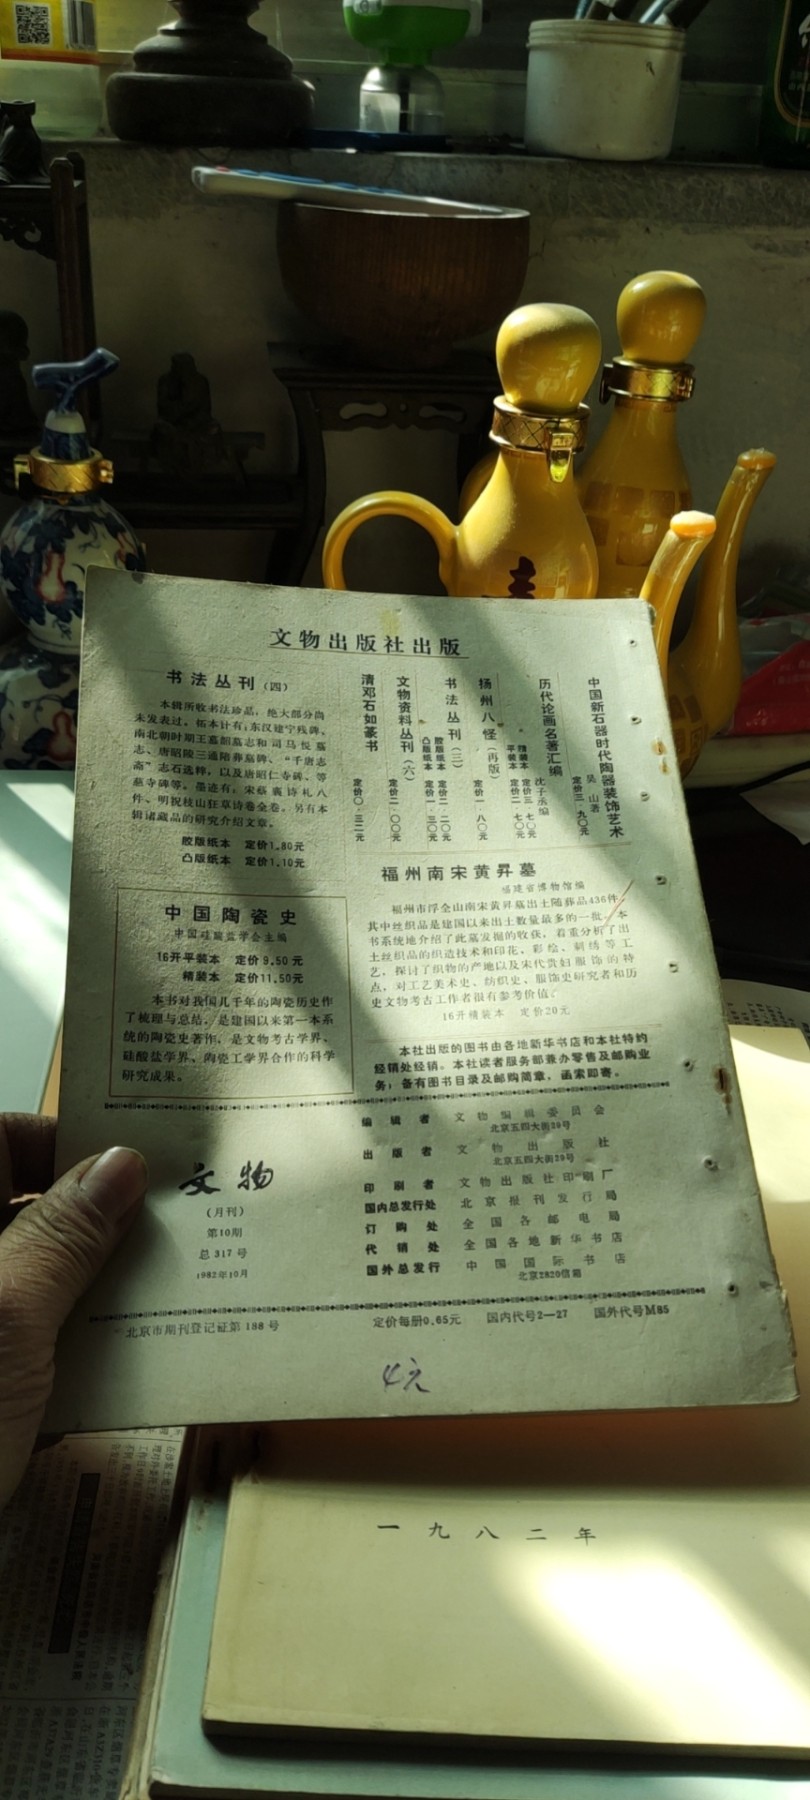 文物出版社出版
书法丛刊（四）
本辑所收书法珍品，绝大部分尚
未发表过，拓本计有：东汉建宁残碑。
南北朝时期王慕韶墓志和司马悦墓
志、唐昭陵三通陪葬墓碑、“千唐志
斋”志石选粹，以及唐昭仁寺碑、等
慈寺碑等。墨迹有：宋蔡襄诗札八
件、明祝枝山狂草诗卷全卷。另有本
辑诸藏品的研究介绍文章。
胶版纸本 定价1.80元
凸版纸本 定价1.10元
中国新石器时代陶器装饰艺术
吴山著
定价三·九〇元
历代论画名著汇编
沈子丞编
精装本 定价三·七〇元
平装本 定价二·七〇元
扬州八怪（再版）
定价一·八〇元
书法丛刊（三）
胶版纸本 定价二·二〇元
凸版纸本 定价一·三〇元
文物资料丛刊（六）
定价二·〇〇元
清邓石如篆书
定价〇·三二元
中国陶瓷史
中国硅酸盐学会主编
16开平装本 定价9.50元
精装本 定价11.50元
本书对我国几千年的陶瓷历史作
了梳理与总结，是建国以来第一本系
统的陶瓷史著作，是文物考古学界、
硅酸盐学界、陶瓷工学界合作的科学
研究成果。
福州南宋黄昇墓
福建省博物馆编
福州市浮仓山南宋黄昇墓出土随葬品436件，
其中丝织品是建国以来出土数量最多的一批。本
书系统地介绍了此墓发掘的收获，着重分析了出
土丝织品的织造技术和印花、彩绘、刺绣等工
艺，探讨了织物的产地以及宋代贵妇服饰的特
点，对工艺美术史、纺织史、服饰史研究者和历
史文物考古工作者很有参考价值。
16开精装本 定价20元
本社出版的图书由各地新华书店和本社特约
经销处经销。本社读者服务部兼办零售及邮购业
务；备有图书目录及邮购简章，函索即寄。
文物
（月刊）
第10期
总317号
1982年10月
编辑者 文物编辑委员会
北京五四大街29号
出版者 文物出版社
北京五四大街29号
印刷者 文物出版社印刷厂
国内总发行处 北京报刊发行局
订购处 全国各邮电局
代销处 全国各地新华书店
国外总发行 中国国际书店
北京2820信箱
北京市期刊登记证第188号 定价每册0.65元 国内代号2—27 国外代号M85
4元
一九八二年